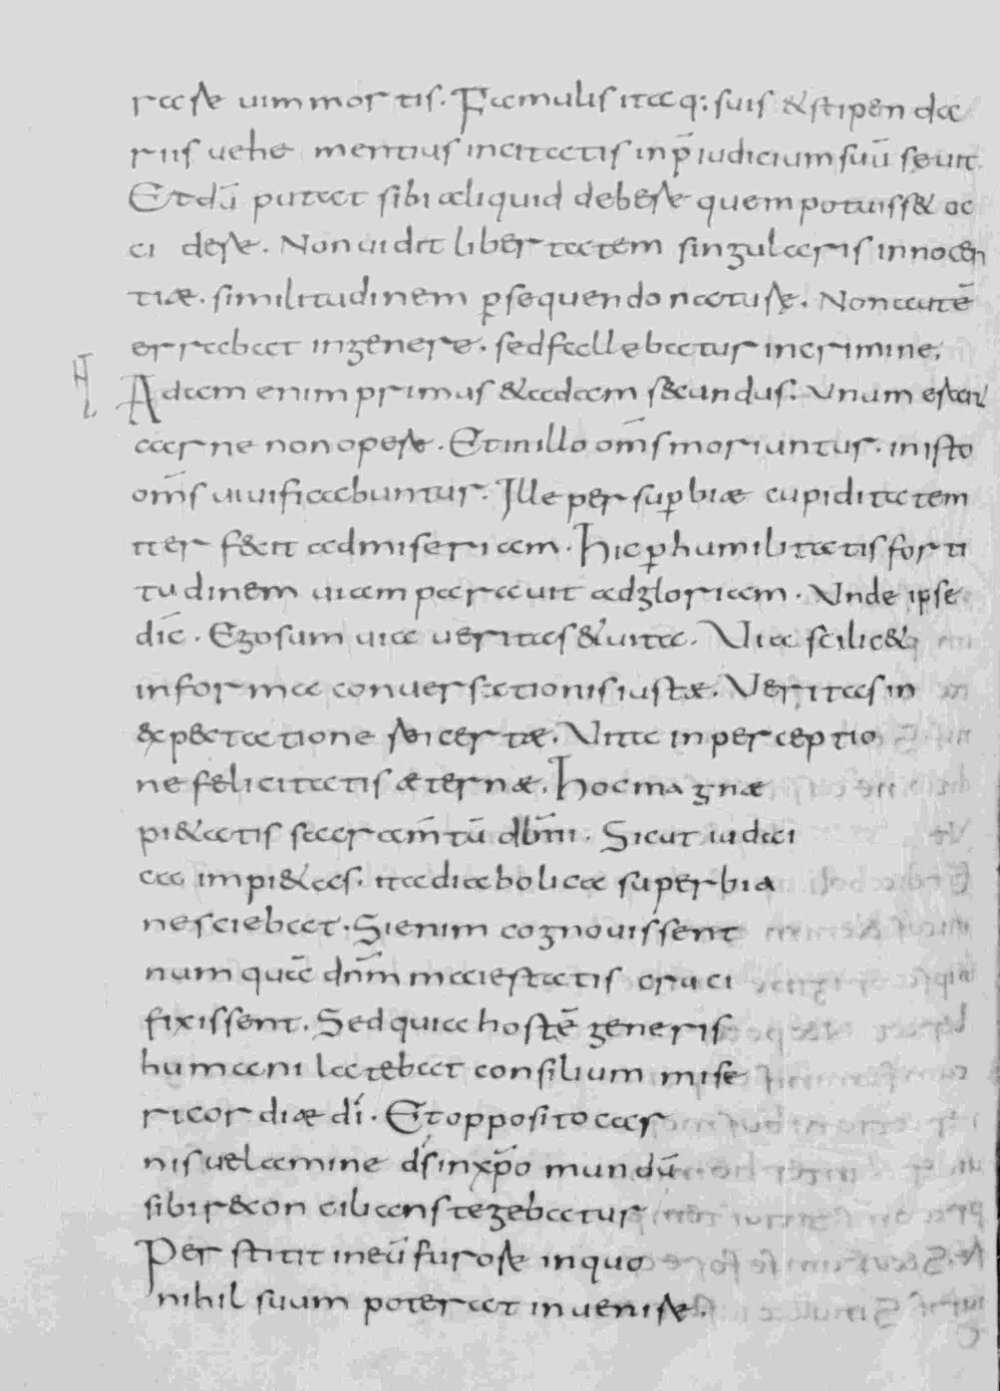 rare uim mortis. Famulis itaq: suis & stipenda
riis uehementius incitatis inp̄iudicium suū seuit.
Et dū putat sibi aliquid debere quem potuiss& oc
cidere. Non uidit libertatem singularis innocen
tiæ. similitudinem ꝑsequendo naturę. Non autē
errabat in genere. sed fallebatur in crimine.
Adam enim primus & adam s&undus. Unum est in
carne non opere. Et in illo om̄s moriuntur. in isto
om̄s uiuificabuntur. Ille per suꝑbiæ cupiditatem
iter f&it ad miseriam. Hic ꝑ humilitatis forti
tudinem uiam parauit ad gloriam. Unde ipse
dic̄. Ego sum uia ueritas & uita. Uia scilic&
in forma conuersationis iustæ. Ueritas in
&pectatione rei certæ. Uita in perceptio
ne felicitatis æternæ. Hoc magnæ
pi&atis sacram̄tū dr̄m̄i. Sicut iudai
ca impi&as. ita diabolica superbia
nesciebat. Si enim cognouissent
numquā dn̄m maiestatis cruci
fixissent. Sed quia hostē generis
humani latebat consilium mise
ricordiæ dī. Et opposito car
nis uelamine d̄s in xp̄o mundū
sibi r&concilians tegebatur
Perstitit in eū furore in quo
nihil suum poterat inuenire.